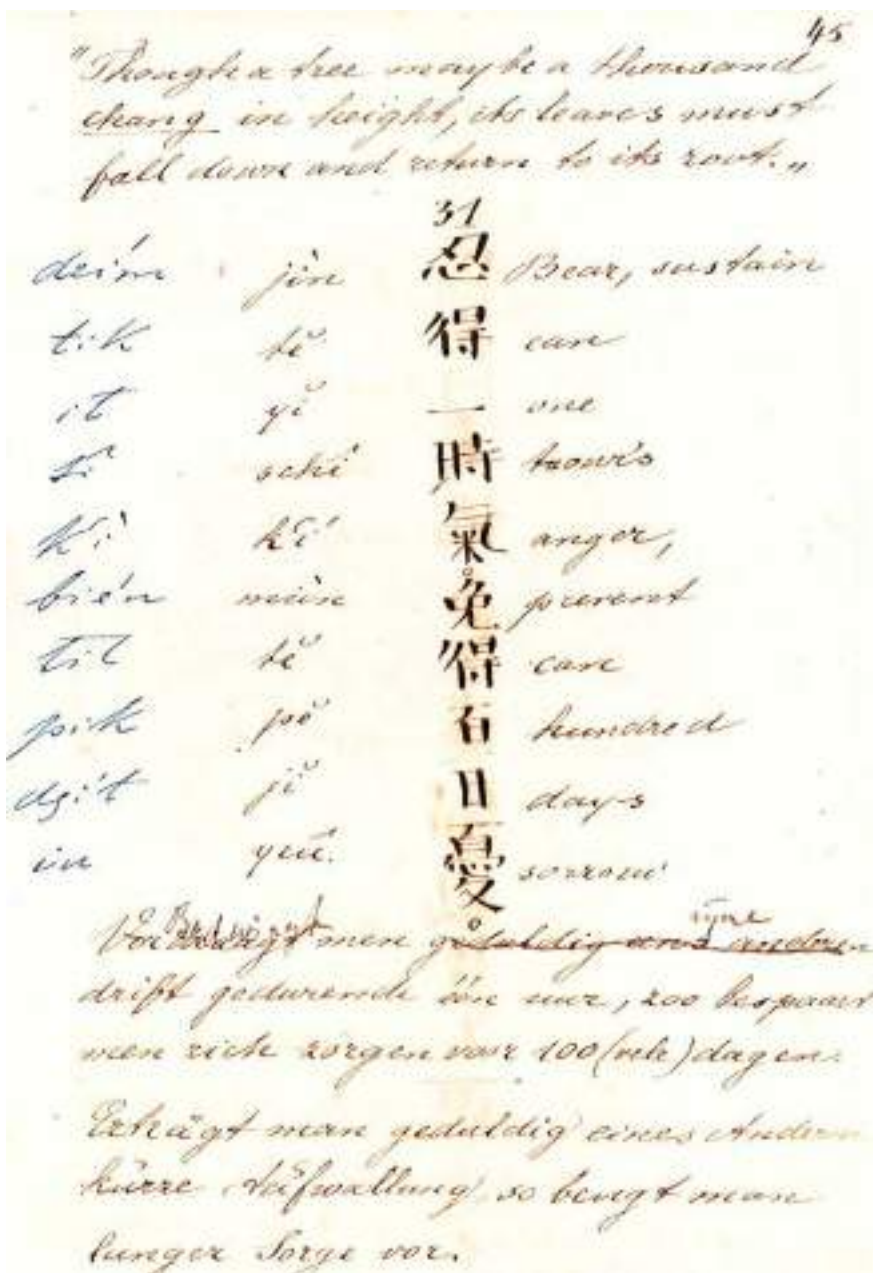 45
"Though a tree maybe a thousand
chang in height, its leaves must
fall down and return to its root."
31
deím jìn 忍 Bear, sustain
tik tĕ 得 can
it yĭ 一 one
sî schî 時 hour's
k'ì k'í 氣 anger,
bién mièn 免 prevent
tit tĕ 得 can
pik pĕ 百 hundred
dzit jĭ 日 days
iu yeū. 憂 sorrow
Bedwingt zijne
men geduldig anderen
drift gedurende één uur, zoo bespaart
men zich zorgen voor 100 (vele) dagen.
Erträgt man geduldig eines Andern
kürze Aufwallung, so beugt man
langer Sorge vor.